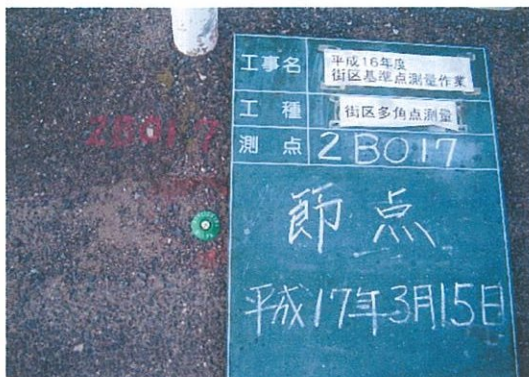 工事名 平成16年度
街区基準点測量作業
工種 街区多角点測量
測点 2B017
節点
平成17年3月15日
2B017